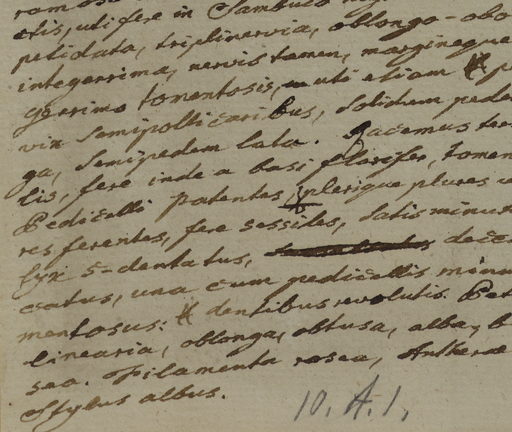 ramosa
etis, uti fere in Sambuco
petiolata, triplinervia, oblongo-obo
integerrima, nervis tamen, margineque
gerrimo tomentosis, uti etiam
vix semipollicaribus, solidum pede
ga, semipedem lata. Racemus ter
lis, fere inde a basi florifer, tomen
Pedicelli patentes, plerique plures
res ferentes, fere sessiles, satis minus
lyx 5-dentatus, dece
catus, una cum pedicellis minu
mentosus: dentibus revolutis. Pet
linearia, oblonga, obtusa, alba,
sea. Filamenta rosea, Antherae
Stylus albus.
10. A. 1.